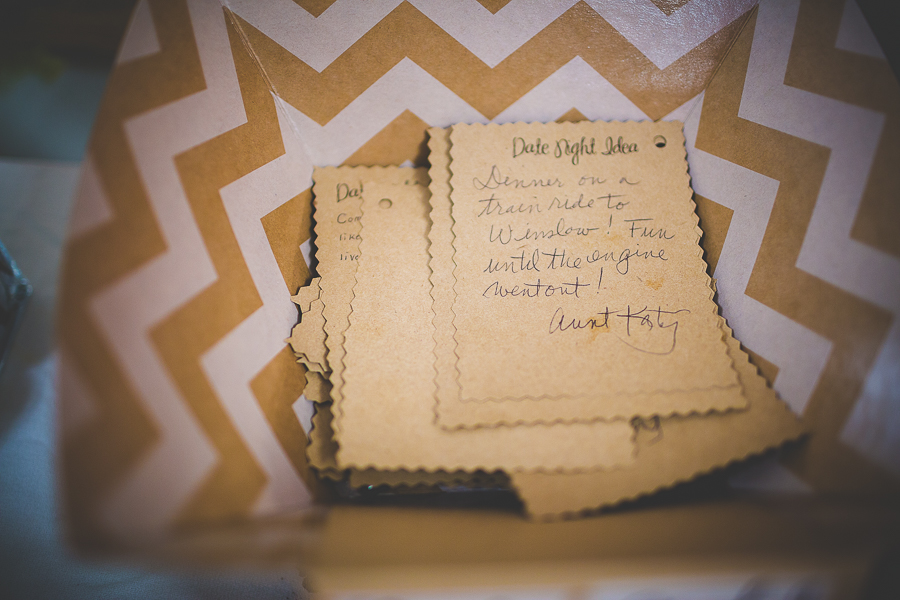 Date Night Idea
Denner on a
train ride to
Winslow! Fun
until the engine
went out!
Aunt Katy
Da
Co
like
live